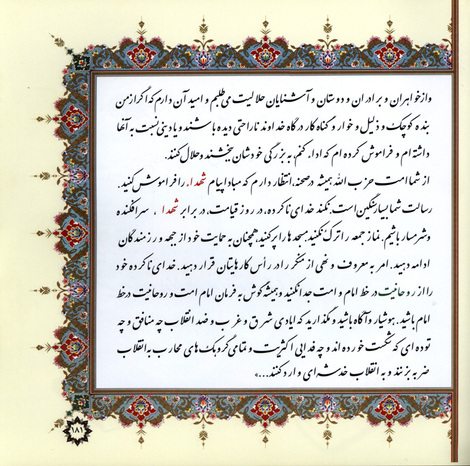 و از خواهران و برادران و دوستان و آشنایان حلالیت می طلبم و امید آن دارم که اگر از من
بنده کوچک و ذلیل و خوار و گناه کار در گاه خداوند ناراحتی دیده باشند و یا دینی نسبت به آنها
داشته ام و فراموش کرده ام که ادا کنم، به بزرگی خودشان ببخشند و حلال کنند.
از شما امت حزب الله همیشه در صحنه، انتظار دارم که مبادا پیام شهدا، را فراموش کنید.
رسالت شما بسیار سنگین است. نکند خدای نا کرده، در روز قیامت، در برابر شهدا ، سرافکنده
و شرمسار باشیم. نماز جمعه را ترک نکنید. مسجدها را پر کنید. همچنان به حمایت خود از جبهه و رزمندگان
ادامه دهید. امر به معروف و نهی از منکر را در رأس کارهایتان قرار دهید. خدای نا کرده خود
را از روحانیت در خط امام و امت جدا نکنید و همیشه گوش به فرمان امام امت و روحانیت در خط
امام باشید. هوشیار و آگاه باشید و نگذارید که ایادی شرق و غرب و ضد انقلاب چه منافق و چه
توده ای که شکست خورده اند و چه فدایی اکثریت و تمامی گروهک های محارب به انقلاب
ضربه بزنند و به انقلاب خدشه ای وارد کنند...»
۱۸۱